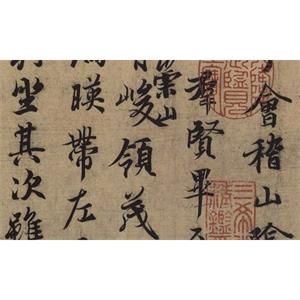 會稽山陰
羣賢畢
崇山峻領茂
暎帶左
坐其次雖